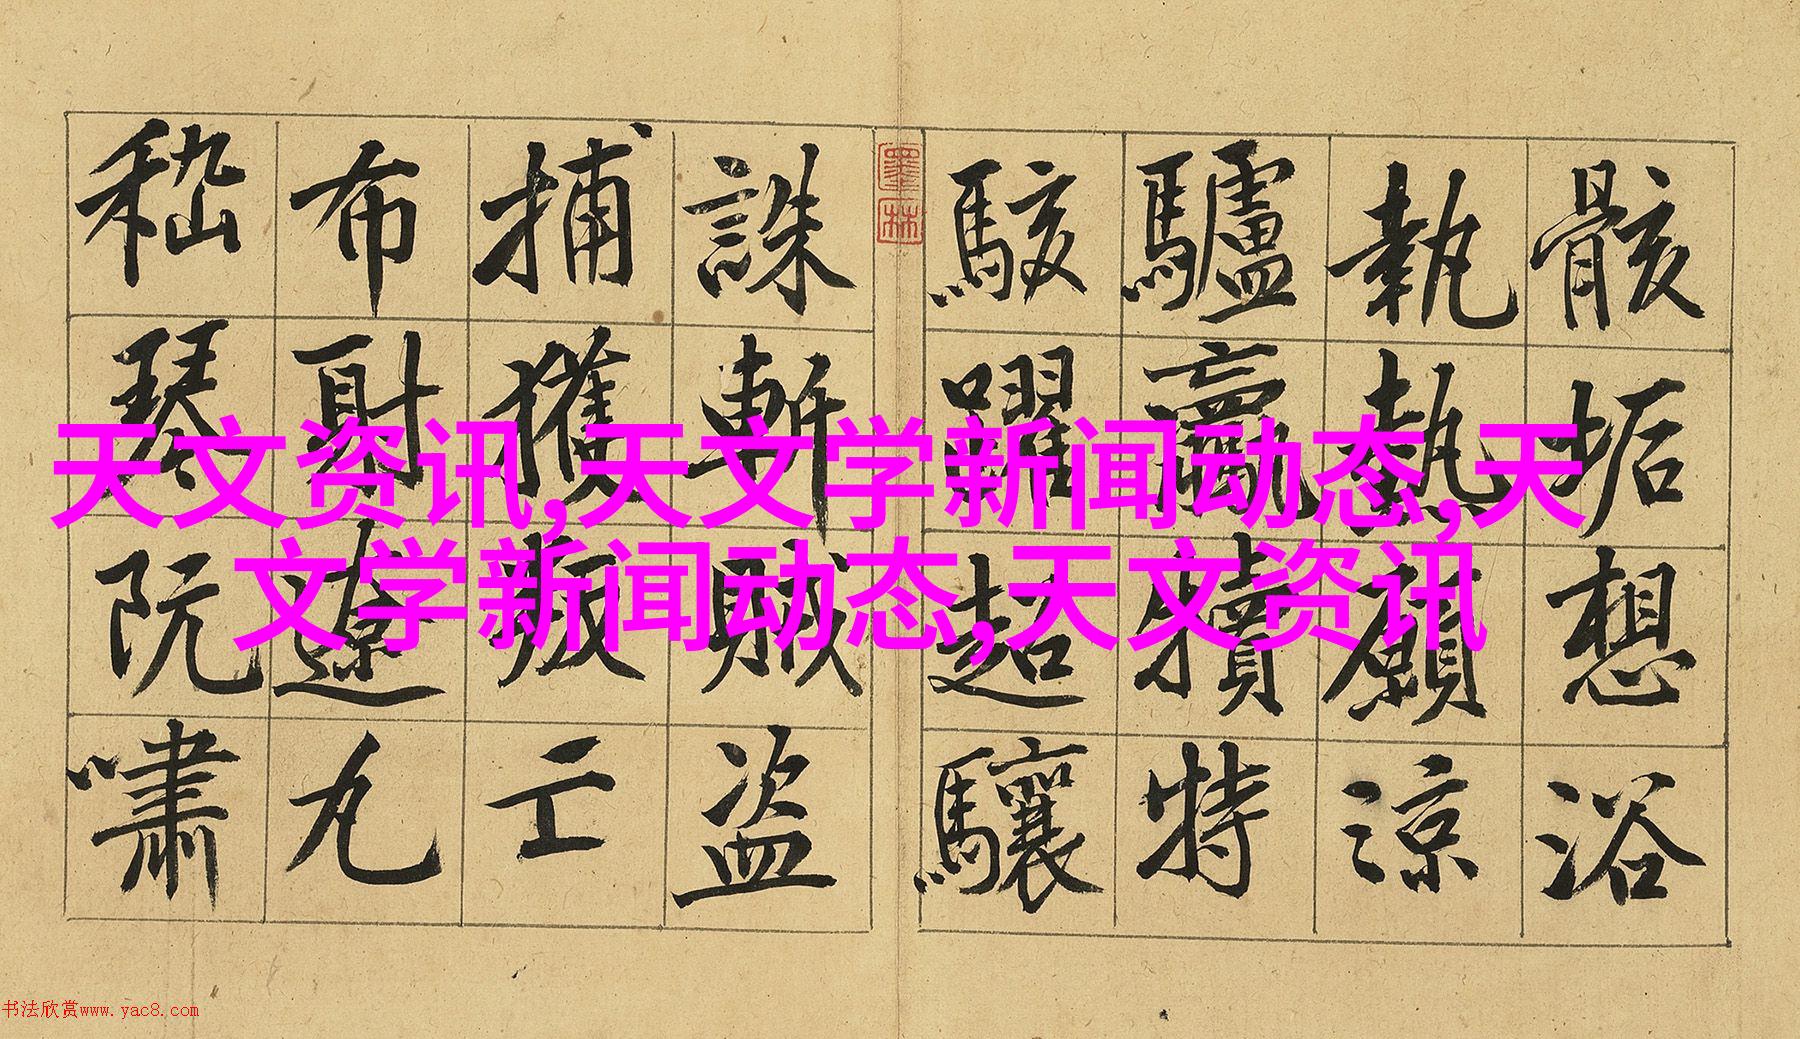 骸垢想浴
執熱願涼
驢驘犢特
駭躍超驤
墨林
誅斬賊盜
捕獲叛亡
布射遼丸
嵇琴阮嘯
天文资讯,天文学新闻动态,天
文学新闻动态,天文资讯
书法欣赏www.yac8.com